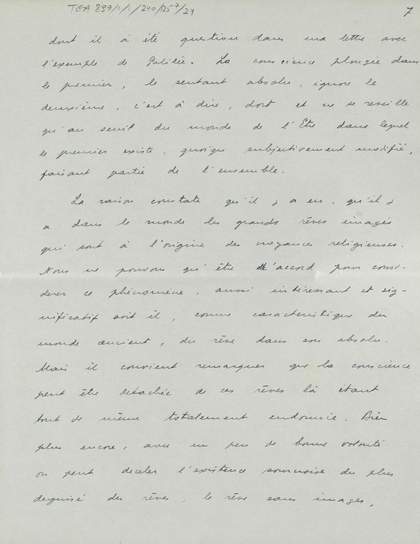 TEA 839/1/1/240/257/24
7
dont il a été question dans ma lettre avec
l'exemple de Galilée. La conscience plongée dans
le premier, le sentant absolu, ignore le
deuxième, c'est à dire, dort et ne se réveille
qu'au seuil du monde de l'Etre dans lequel
le premier existe, quoique subjectivement modifié,
faisant partie de l'ensemble.
La raison constate qu'il y a eu, qu'il y
a dans le monde les grands rêves imagés
qui sont à l'origine des croyances religieuses.
Nous ne pouvons qu'être d'accord pour consi-
dérer ce phénomène, aussi intéressant et sig-
nificatif soit il, comme caractéristique du
monde ancien, du rêve dans son absolu.
Mais il convient remarquer que la conscience
peut être détachée de ces rêves là étant
tout de même totalement endormie. Bien
plus encore, avec un peu de bonne volonté
on peut déceler l'existence sournoise du plus
deguisé des rêves, le rêve sans images,